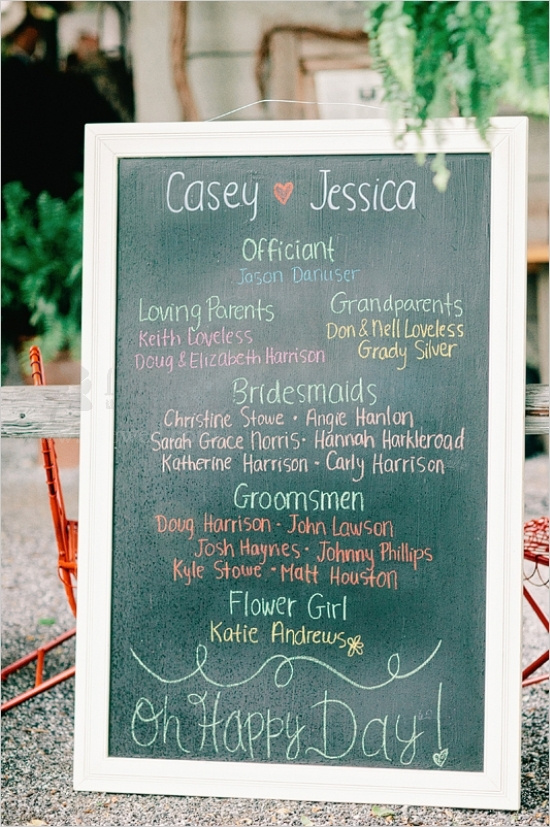 Casey ♥ Jessica
Officiant
Jason Danuser
Loving Parents
Keith Loveless
Doug & Elizabeth Harrison
Grandparents
Don & Nell Loveless
Grady Silver
Bridesmaids
Christine Stowe • Angie Hanlon
Sarah Grace Norris • Hannah Harkleroad
Katherine Harrison • Carly Harrison
Groomsmen
Doug Harrison • John Lawson
Josh Haynes • Johnny Phillips
Kyle Stowe • Matt Houston
Flower Girl
Katie Andrews
Oh Happy Day!